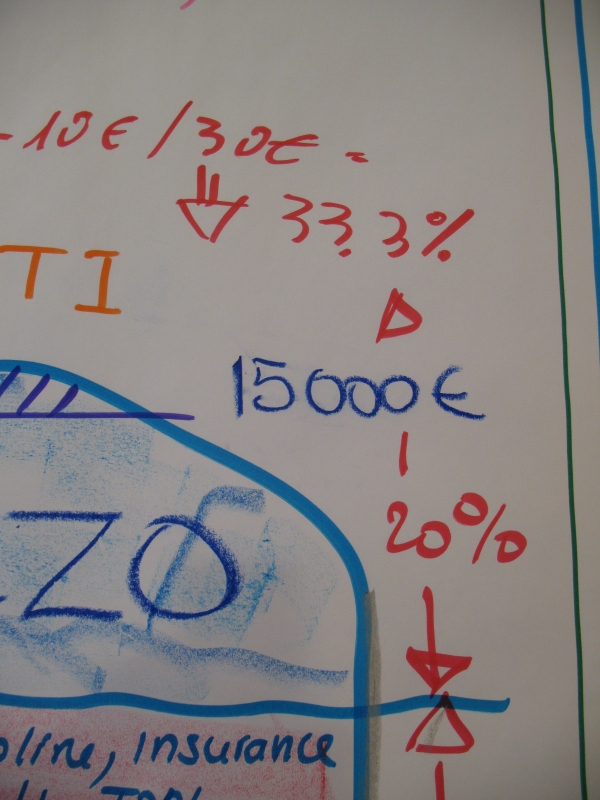 -10€/30€ =
33,3%
TI
15000€
20%
ZZO
oline, insurance